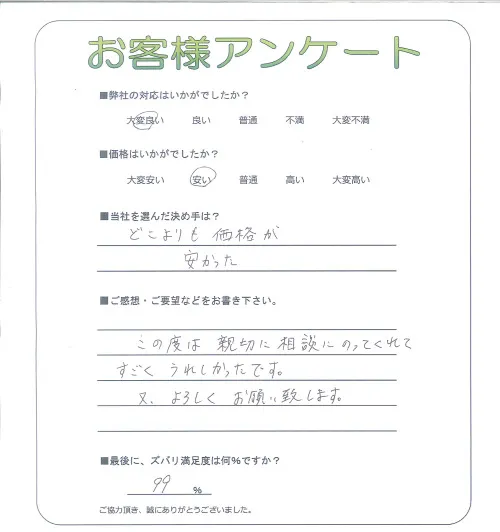 お客様アンケート
■弊社の対応はいかがでしたか?
大変良い 良い 普通 不満 大変不満
■価格はいかがでしたか?
大変安い 安い 普通 高い 大変高い
■当社を選んだ決め手は?
どこよりも 価格が
安かった
■ご感想・ご要望などをお書き下さい。
この度は 親切に 相談にのってくれて
すごく うれしかったです。
又、よろしく お願い致します。
■最後に、ズバリ満足度は何%ですか?
99 %
ご協力頂き、誠にありがとうございました。